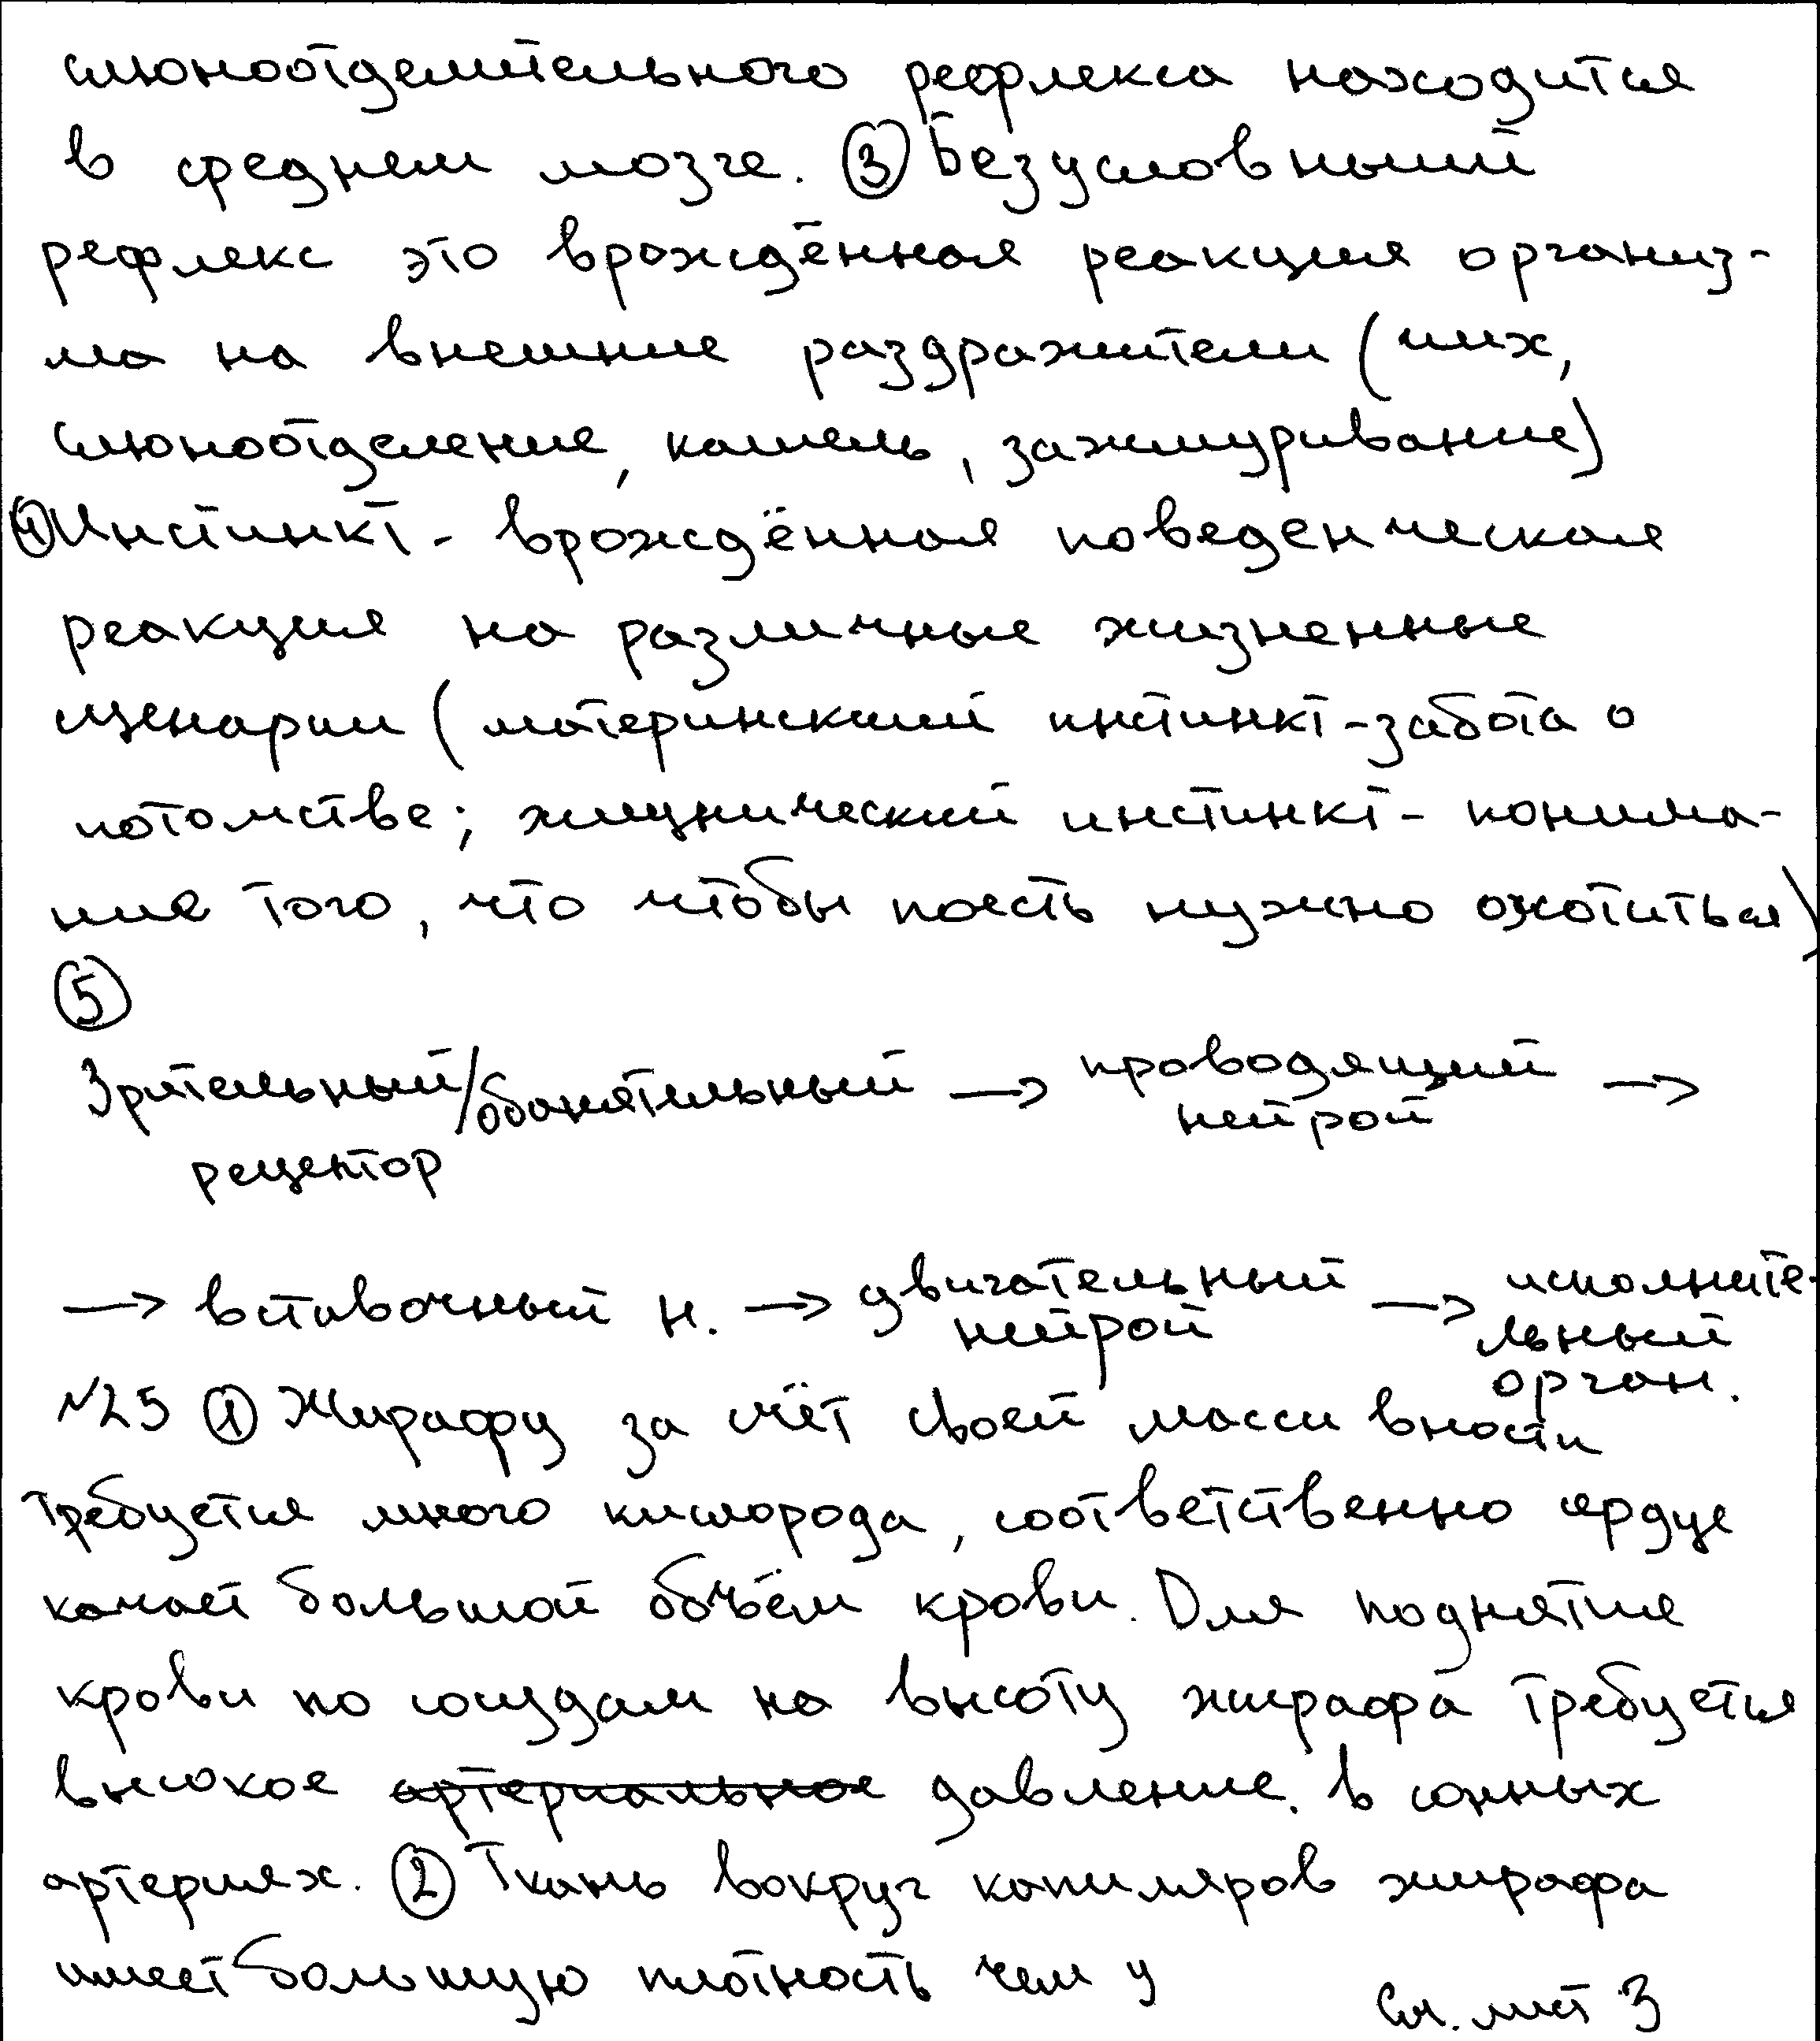 слюноотделительного рефлекса находится
в среднем мозге. ③ Безусловный
рефлекс это врождённая реакция организ-
ма на внешние раздражители (чих,
слюноотделение, кашель, зажмуривание)
④ Инстинкт - врождённая поведенческая
реакция на различные жизненные
сценарии (материнский инстинкт - забота о
потомстве; хищнический инстинкт - понима-
ние того, что чтобы поесть нужно охотиться)
⑤
Зрительный/обонятельный → проводящий →
рецептор нейрон
→ вставочный н. → двигательный → исполните-
нейрон льный
орган.
№25 ① Жирафу за счёт своей массивности
требуется много кислорода, соответственно сердце
качает большой объём крови. Для поднятие
крови по сосудам на высоту жирафа требуется
высокое артериальное давление. в сонных
артериях. ② Ткань вокруг капиляров жирафа
имеет большую плотность чем у
См. лист 3